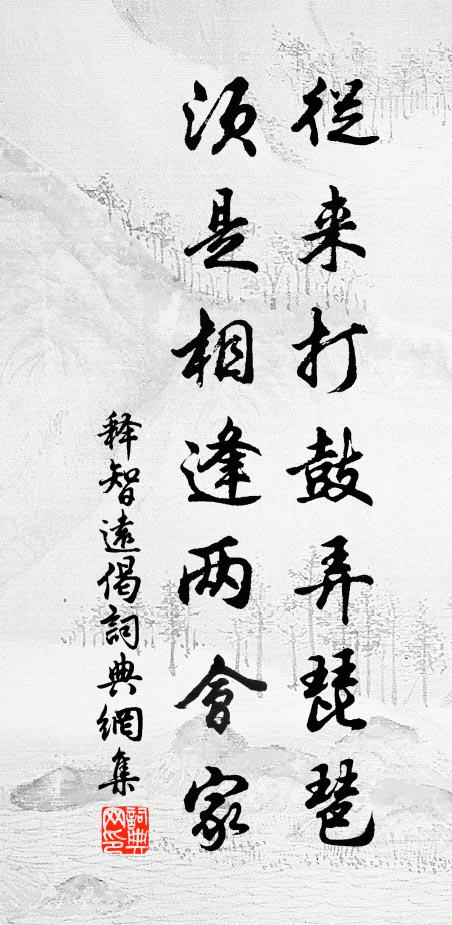 從来打鼓弄琵琶
须是相逢两會家
释智遠偈詞典網集
詞典网印